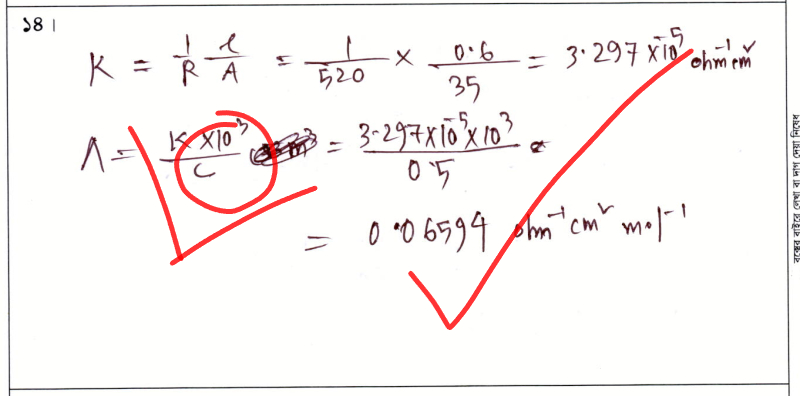 ১৪।
K = 1/R l/A = 1/520 × 0.6/35 = 3.297 × 10⁻⁵ ohm⁻¹ cm⁻¹
Λ = K × 10³/C = 3.297 × 10⁻⁵ × 10³/0.5
= 0.06594 ohm⁻¹ cm² mol⁻¹
বক্সের বাইরে লেখা বা দাগ দেয়া নিষেধ